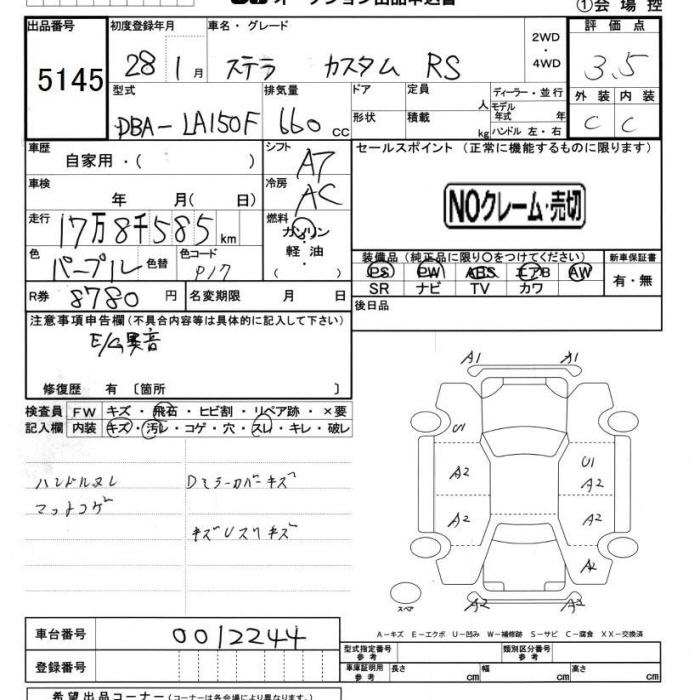 ①会場控
出品番号 初度登録年月 車名・グレード 2WD・4WD 評価点
5145 28 1月 ステラ カスタム RS 3.5
型式 排気量 ドア 定員 人 ディーラー・並行 外装 内装
DBA-LA150F 660cc 形状 積載 kg モデル年式 年 ハンドル 左・右 C C
車歴 自家用・( ) シフト A7 セールスポイント (正常に機能するものに限ります)
車検 年 月( 日) 冷房 AC NOクレーム・売切
走行 17万8千585km 燃料 ガソリン・軽油・( )
色 パープル 色替 色コード P17
装備品(純正品に限り○をつけてください) 新車保証書
PS PW ABS エアB AW 有・無
SR ナビ TV カワ
R券 8780円 名変期限 月 日 後日品
注意事項申告欄(不具合内容等は具体的に記入して下さい)
E/G異音
修復歴 有 〔箇所 〕
検査員 FW キズ・飛石・ヒビ割・リペア跡・×要
記入欄 内装 キズ・汚レ・コゲ・穴・スレ・キレ・破レ
ハンドルスレ Dミラーカバーキズ
マットコゲ
キズUスリキズ
A1 A1
U1 U1
A2 A2
A2 A2
A2 A2
スペア
A-キズ E-エクボ U-凹み W-補修跡 S-サビ C-腐食 XX-交換済
車台番号 0012244
型式指定番号 類別区分番号
登録番号 車庫証明用参考 長さ cm 幅 cm 高さ cm
希望出品コーナー(コーナーは各会場により異なります。)